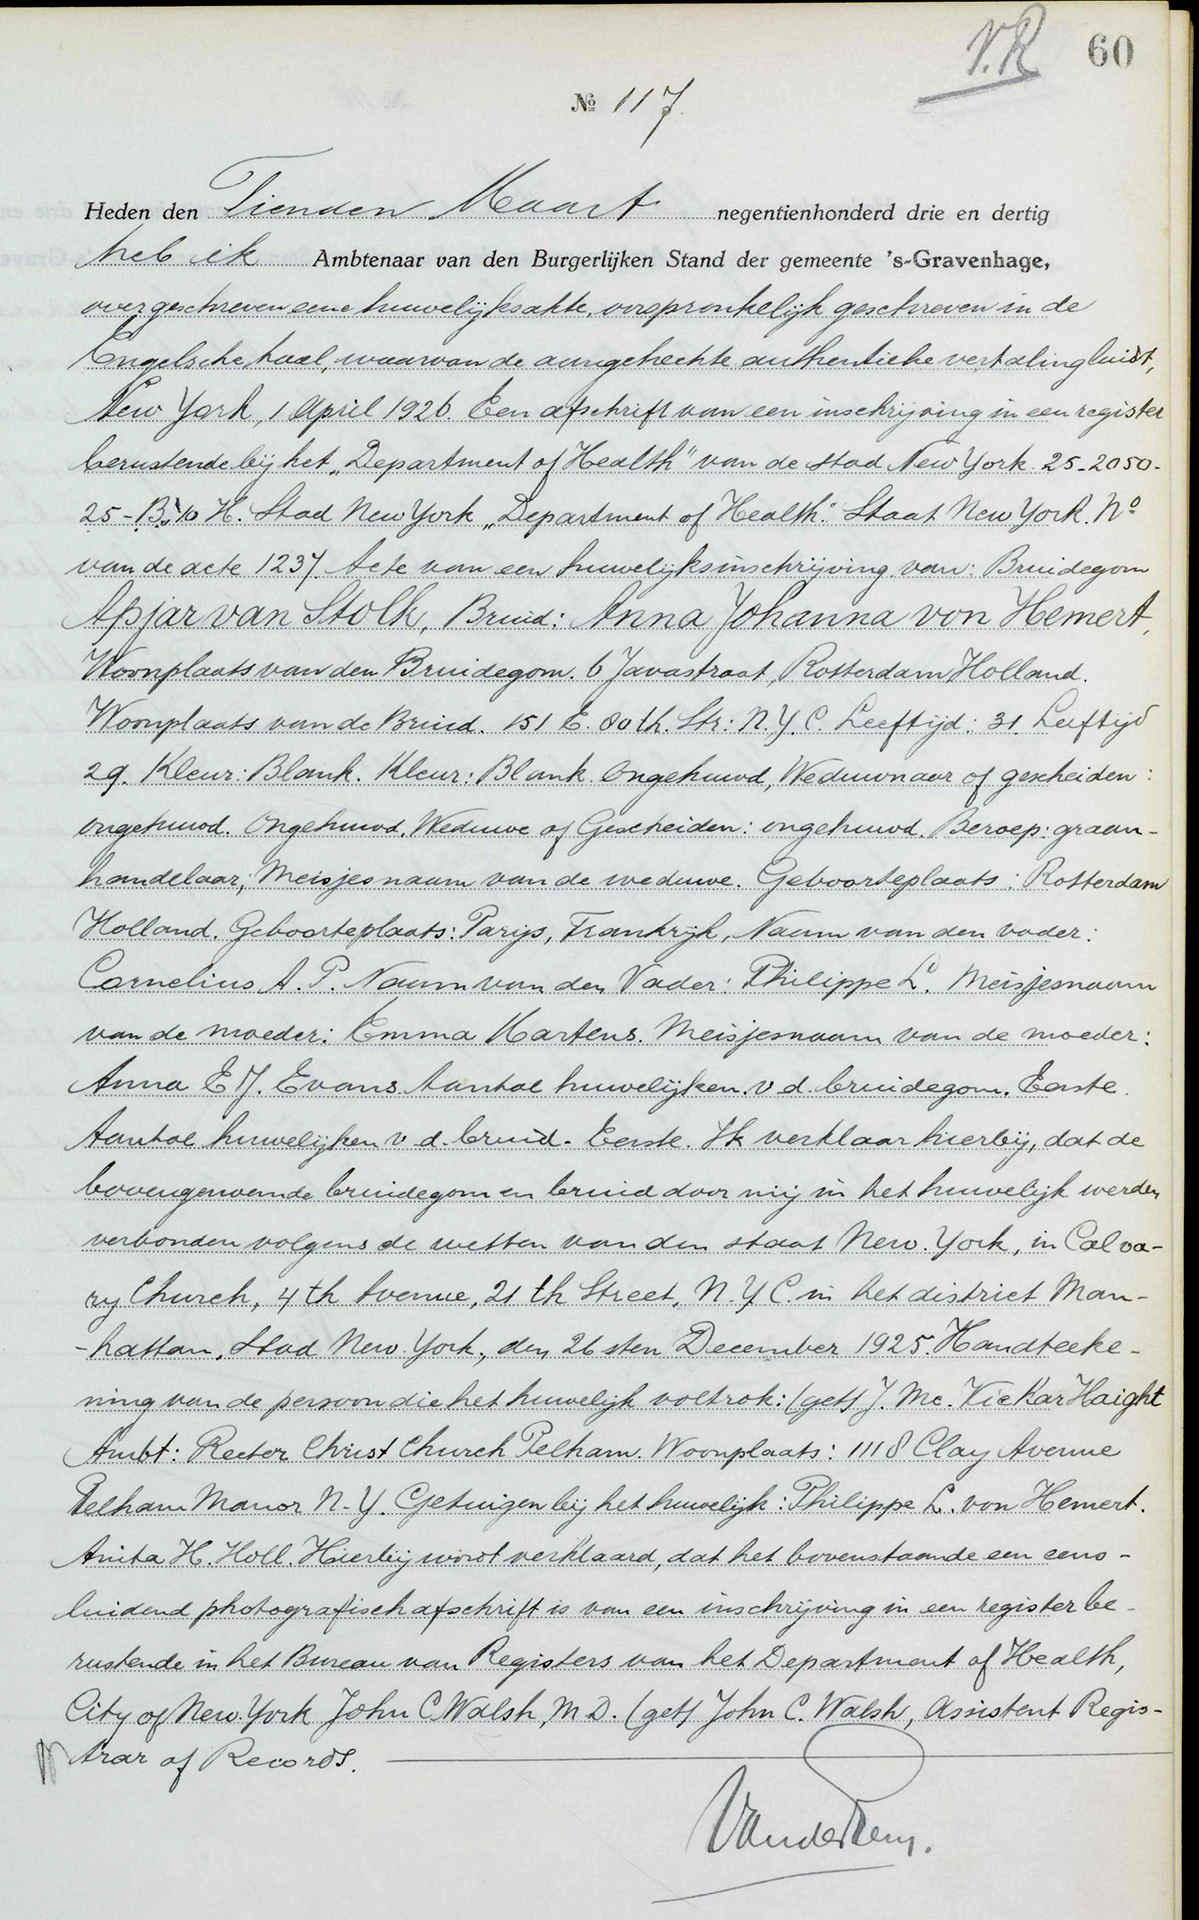 V.R 60
№ 117
Heden den Tienden Maart negentienhonderd drie en dertig
heb ik Ambtenaar van den Burgerlijken Stand der gemeente 's-Gravenhage,
overgeschreven eene huwelijksakte, oorspronkelijk geschreven in de
Engelsche taal, waarvan de aangehechte authentieke vertaling luidt,
New York, 1 April 1926. Een afschrift van een inschrijving in een register
berustende bij het „Department of Health" van de stad New York. 25-2050-
25-B. H. Stad New York „Department of Health". Staat New York. No
van de acte 1237. Acte van een huwelijksinschrijving van: Bruidegom
Apjar van Stolk, Bruid: Anna Johanna von Hemert,
Woonplaats van den Bruidegom. 6 Javastraat, Rotterdam Holland.
Woonplaats van de Bruid. 151 E. 80 th. Str: N.Y.C. Leeftijd: 31. Leeftijd
29. Kleur: Blank. Kleur: Blank. Ongehuwd, Weduwnaar of gescheiden:
ongehuwd. Ongehuwd, Weduwe of Gescheiden: ongehuwd. Beroep: graan-
handelaar; Meisjesnaam van de weduwe. Geboorteplaats: Rotterdam
Holland. Geboorteplaats: Parijs, Frankrijk, Naam van den vader:
Cornelius A. P. Naam van den Vader: Philippe L. Meisjesnaam
van de moeder: Emma Martens. Meisjesnaam van de moeder:
Anna E J. Evans. Aantal huwelijken. v d. bruidegom. Eerste.
Aantal huwelijken v. d. bruid. Eerste. Ik verklaar hierbij, dat de
bovengenoemde bruidegom en bruid door mij in het huwelijk werden
verbonden volgens de wetten van den staat New. York, in Calva-
ry Church, 4 th Avenue, 21 th Street, N.Y C. in het district Man-
-hattan, Stad New York, den 26 sten December 1925. Handteeke-
ning van de persoon die het huwelijk voltrok: (get) J. Mc. Vickar Haight
Ambt: Rector Christ Church Pelham. Woonplaats: 1118 Clay Avenue
Pelham Manor N-Y. Getuigen bij het huwelijk: Philippe L. von Hemert.
Anita H. Holl. Hierbij wordt verklaard, dat het bovenstaande een eens-
luidend photografisch afschrift is van een inschrijving in een register be-
rustende in het Bureau van Registers van het Department of Health,
City of New. York John C Walsh, M D. (get) John C. Walsh, Assistent Regis-
trar of Records.